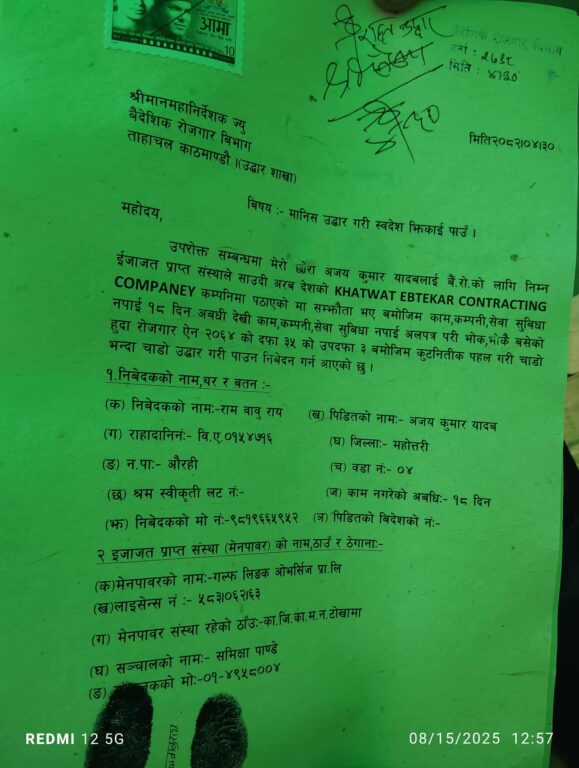 आमा
10
बैदेशिक रोजगार विभाग
दर्ता : २७६९
मिति : ४।३०
मिति२०८२।०४।३०
श्रीमानमहानिर्देशक ज्यु
बैदेशिक रोजगार विभाग
ताहाचल काठमाण्डौ ।(उद्धार शाखा)
बिषय :- मानिस उद्धार गरी स्वदेश झिकाई पाउँ ।
महोदय,
उपरोक्त सम्बन्धमा मेरो छोरा अजय कुमार यादबलाई बैं.रो.को लागि निम्न
ईजाजत प्राप्त संस्थाले साउदी अरब देशको KHATWAT EBTEKAR CONTRACTING
COMPANEY कम्पनिमा पठाएको मा सम्झौता भए बमोजिम काम,कम्पनी,सेवा सुबिधा
नपाई १८ दिन अबधी देखी काम,कम्पनी,सेवा सुबिधा नपाई अलपत्र परी भोक,भोकै बसेको
हुदा रोजगार ऐन २०६४ को दफा ३५ को उपदफा ३ बमोजिम कुटनितीक पहल गरी चाडो
भन्दा चाडो उद्धार गरी पाउन निबेदन गर्न आएको छु ।
१.निबेदकको नाम,थर र बतन :-
(क) निबेदकको नाम:-राम वावु राय (ख) पिडितको नाम:- अजय कुमार यादब
(ग) राहादानिनं:- बि.ए.०१५४७१६ (घ) जिल्ला:- महोत्तरी
(ङ) न.पा:- औरही (च) वडा नं:- ०४
(छ) श्रम स्वीकृती लट नं:- (ज) काम नगरेको अबधि:- १८ दिन
(झ) निबेदकको मो नं:-९८१९६६५९५२ (ञ) पिडितको बिदेशको नं:-
२ इजाजत प्राप्त संस्था (मेनपावर) को नाम,ठाउँ र ठेगाना:-
(क)मेनपावरको नाम:-गल्फ लिङक ओभर्सिज प्रा.लि
(ख)लाइसेन्स नं :- ५८३।०६२।६३
(ग) मेनपावर संस्था रहेको ठाँउ:-का.जि.का.म.न.टोखामा
(घ) सञ्चालको नाम:- समिक्षा पाण्डे
(ङ) मो:-०१-४९५८००४
REDMI 12 5G
08/15/2025 12:57